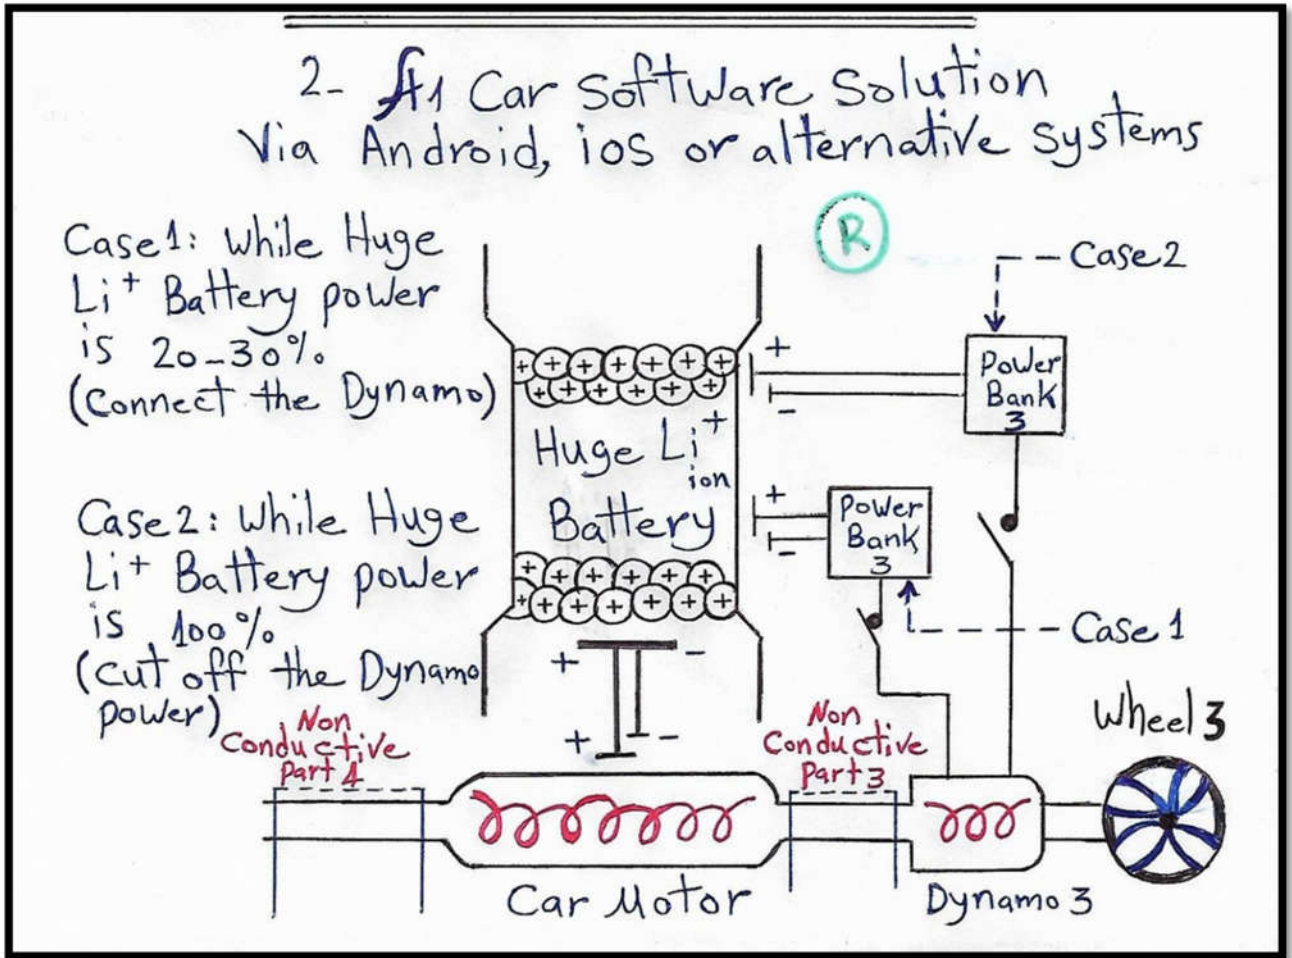 2- A1 Car Software Solution
Via Android, ios or alternative systems
R
Case1: While Huge
Li+ Battery power
is 20-30%
(Connect the Dynamo)
Case 2: While Huge
Li+ Battery power
is 100%
(Cut off the Dynamo
power)
Case 2
+
-
Power
Bank
3
Huge Li+
ion
Battery
+
-
Power
Bank
3
Case 1
+ -
+ -
Non
Conductive
Part 4
Non
Conductive
Part 3
Wheel 3
Car Motor
Dynamo 3